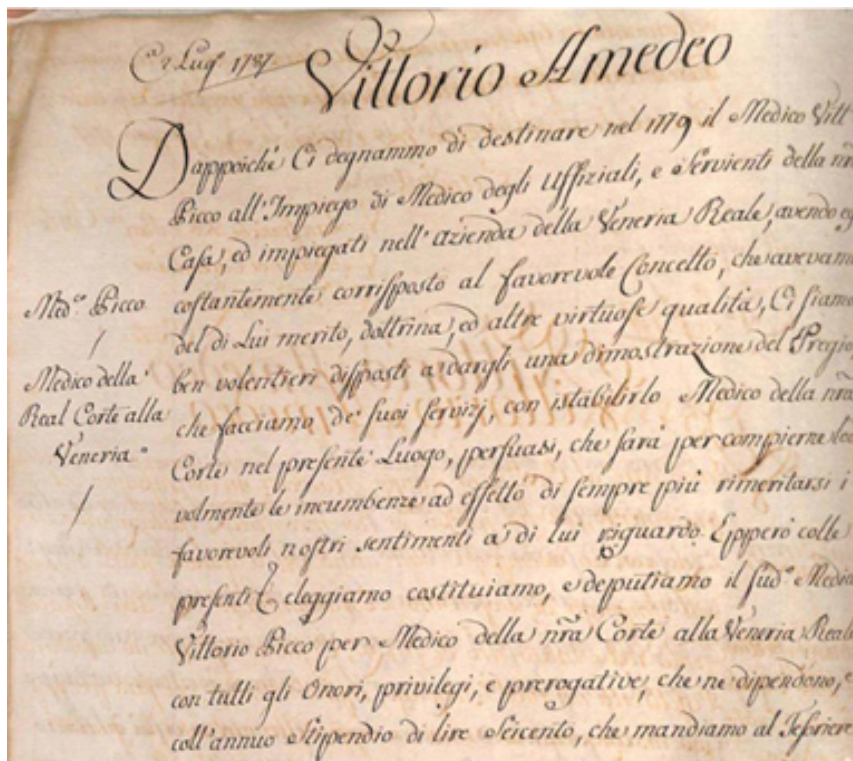 C. 2 Lug.º 1787
Vittorio Amedeo
Dappoiche Ci degnammo di destinare nel 1779 il Medico Vitt
Picco all'Impiego di Medico degli Uffiziali, e Servienti della nrã
Casa, ed impiegati nell'azienda della Veneria Reale, avendo eg
costantemente corrisposto al favorevole Concetto, che avevamo
del di Lui merito, dottrina, ed altre virtuose qualità, Ci siamo
ben volentieri disposti a dargli una dimostrazione del Pregio,
che facciamo de' suoi servizj, con istabilirlo Medico della nrã
Corte nel presente Luogo, persuasi, che sarà per compierne lod
volmente le incumbenze ad effetto di sempre più rimeritarsi i
favorevoli nostri sentimenti a di lui riguardo. Epperò colle
presenti eleggiamo costituiamo, e deputiamo il sud.º Medico
Vittorio Picco per Medico della nrã Corte alla Veneria Reale
con tutti gli Onori, privilegi, e prerogative, che ne dipendono, e
coll'annuo Stipendio di lire Seicento, che mandiamo al Tesoriere
Med.º Picco
/
Medico della
Real Corte alla
Veneria
/